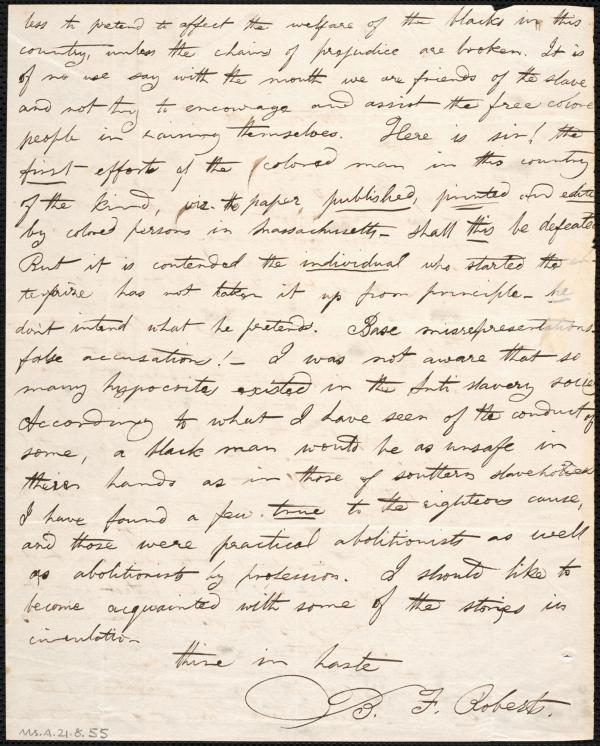 less to pretend to affect the welfare of the blacks in this
country, unless the chains of prejudice are broken. It is
of no use say with the mouth we are friends of the slave
and not try to encourage and assist the free colore
people in raising themselves. Here is sir! the
first efforts of the colored man in this country
of the kind, viz. the paper published, printed and edite
by colored persons in Massachusetts- shall this be defeated
But it is contended the individual who started the
terprize has not taken it up from principle- he
dont intend what he pretends. Base misrepresentations
false accusation!- I was not aware that so
many hypocrites existed in the Anti slavery society
According to what I have seen of the conduct of
some, a black man would be as unsafe in
their hands as in those of southern slaveholders
I have found a few true to the righteous cause,
and those were practical abolitionists as well
as abolitionists by profession. I should like to
become acquainted with some of the stories in
circulation
thine in haste
B. F. Roberts.
Ms.A.21.8.55